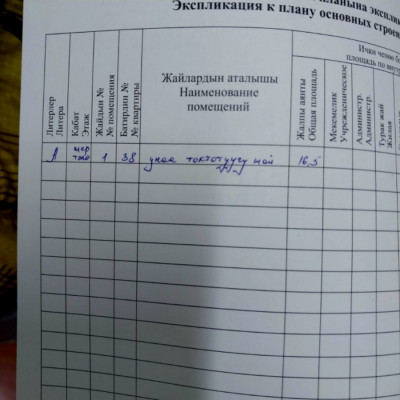 планына эксплик
Экспликация к плану основных строе
Ички ченөө бо
площадь по внут
Литерлер
Литера
Кабат
Этаж
Жайдын №
№ помещения
Батирдин №
№ квартиры
Жайлардын аталышы
Наименование
помещений
Жалпы аянты
Общая площадь
Мекемелик
Учрежденческое
Администр.
Администр.
Турак жай
Жилая
А
цок
1
38
унаа токтотуучу жай
16,5